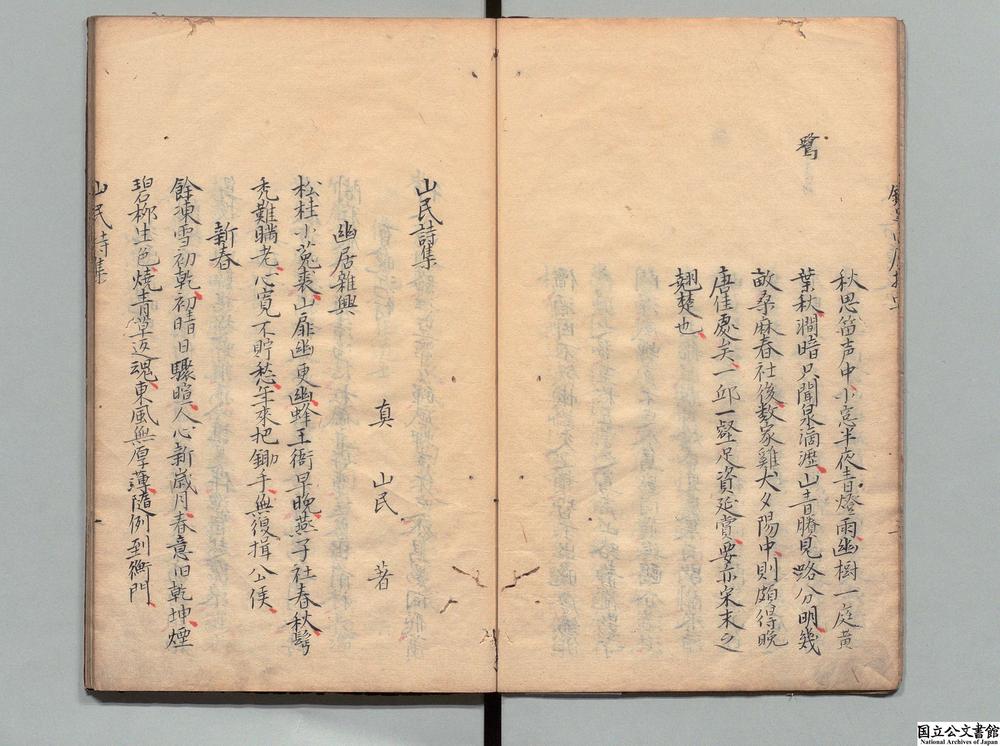 鷺
秋思笛声中小窓半夜青燈雨幽樹一庭黄
葉秋澗暗只聞泉滴瀝山青賸見路分明幾
畝桑麻春社後数家雞犬夕陽中則頗得晩
唐佳處矣一邱一壑足資延賞要亦宋末之
翹楚也
山民詩集
真 山民 著
幽居雜興
松桂小菟裘山扉幽更幽蜂王衙早晩燕子社春秋髩
禿難瞞老心寛不貯愁年來把鋤手無復揖公侯
新春
餘凍雪初乾初晴日驟暄人心新歳月春意旧乾坤煙
碧栁生色燒青草返魂東風無厚薄隨例到衡門
山民詩集
国立公文書館
National Archives of Japan